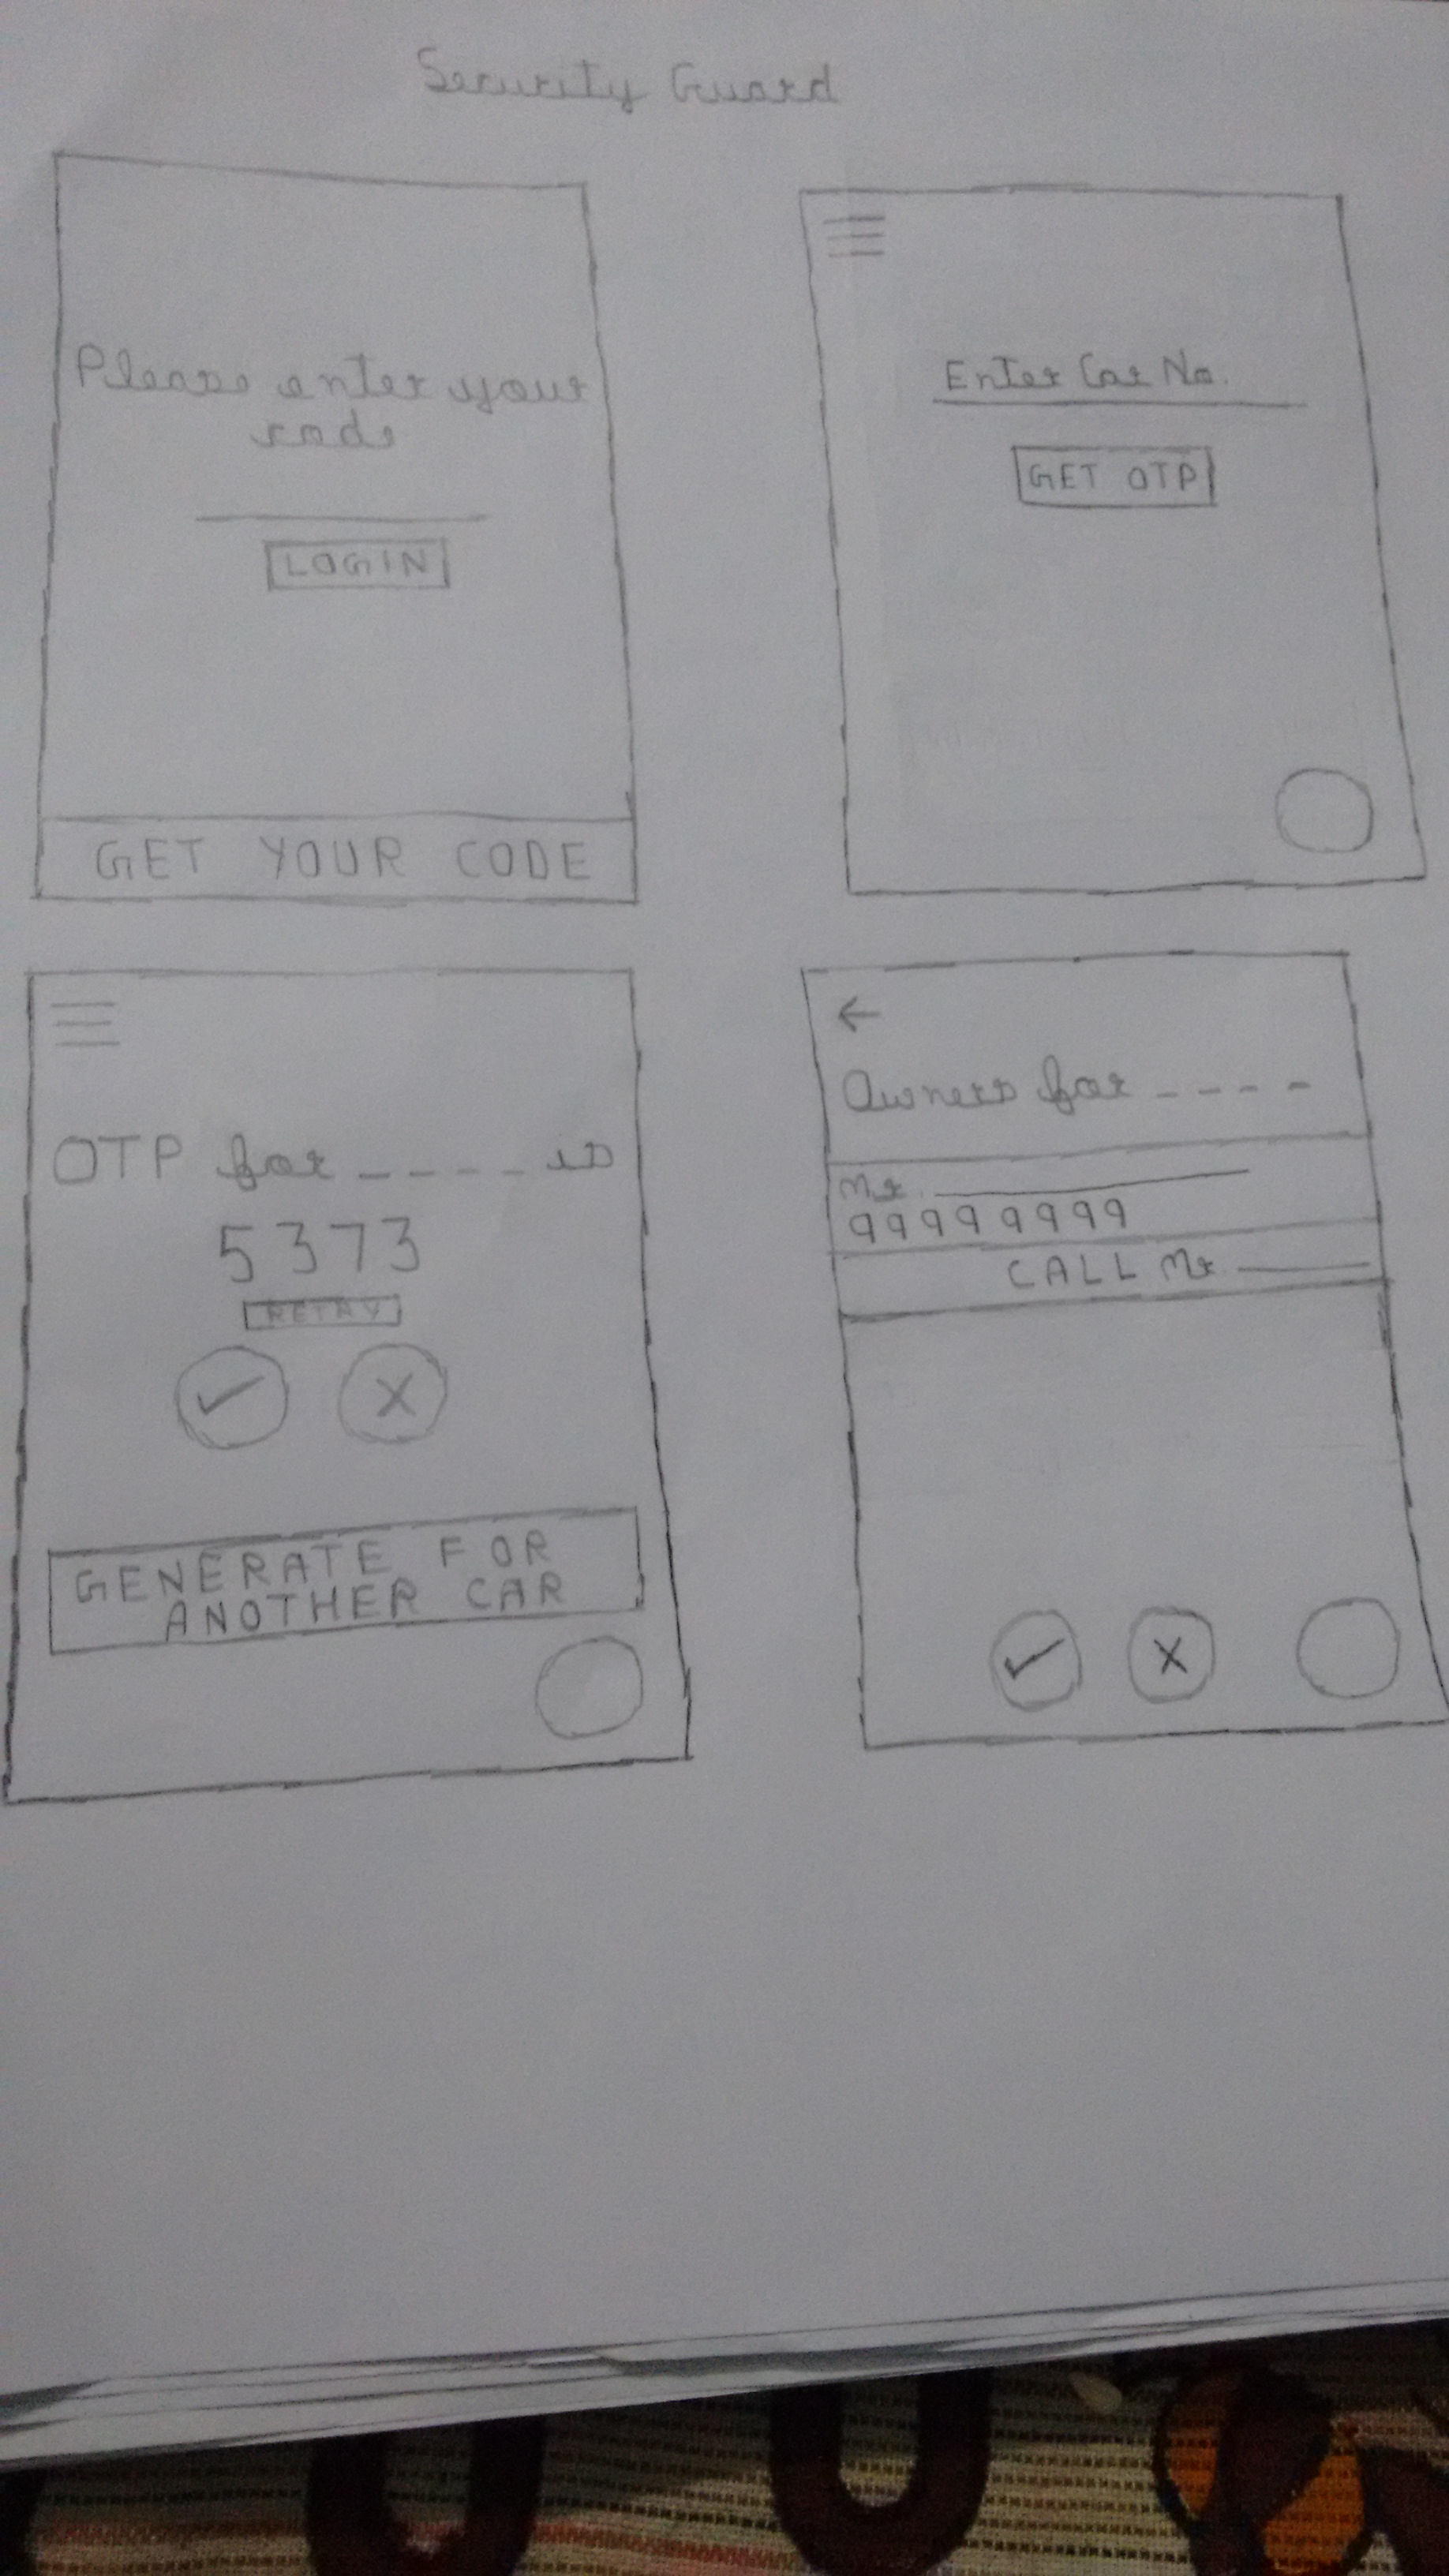 Security Guard
Please enter your
code
LOGIN
GET YOUR CODE
Enter Car No.
GET OTP
OTP for _ _ _ _ is
5373
RETRY
✓ X
GENERATE FOR
ANOTHER CAR
←
Owners for _ _ _ _
Mr. ________
99999999
CALL Mr. ____
✓ X